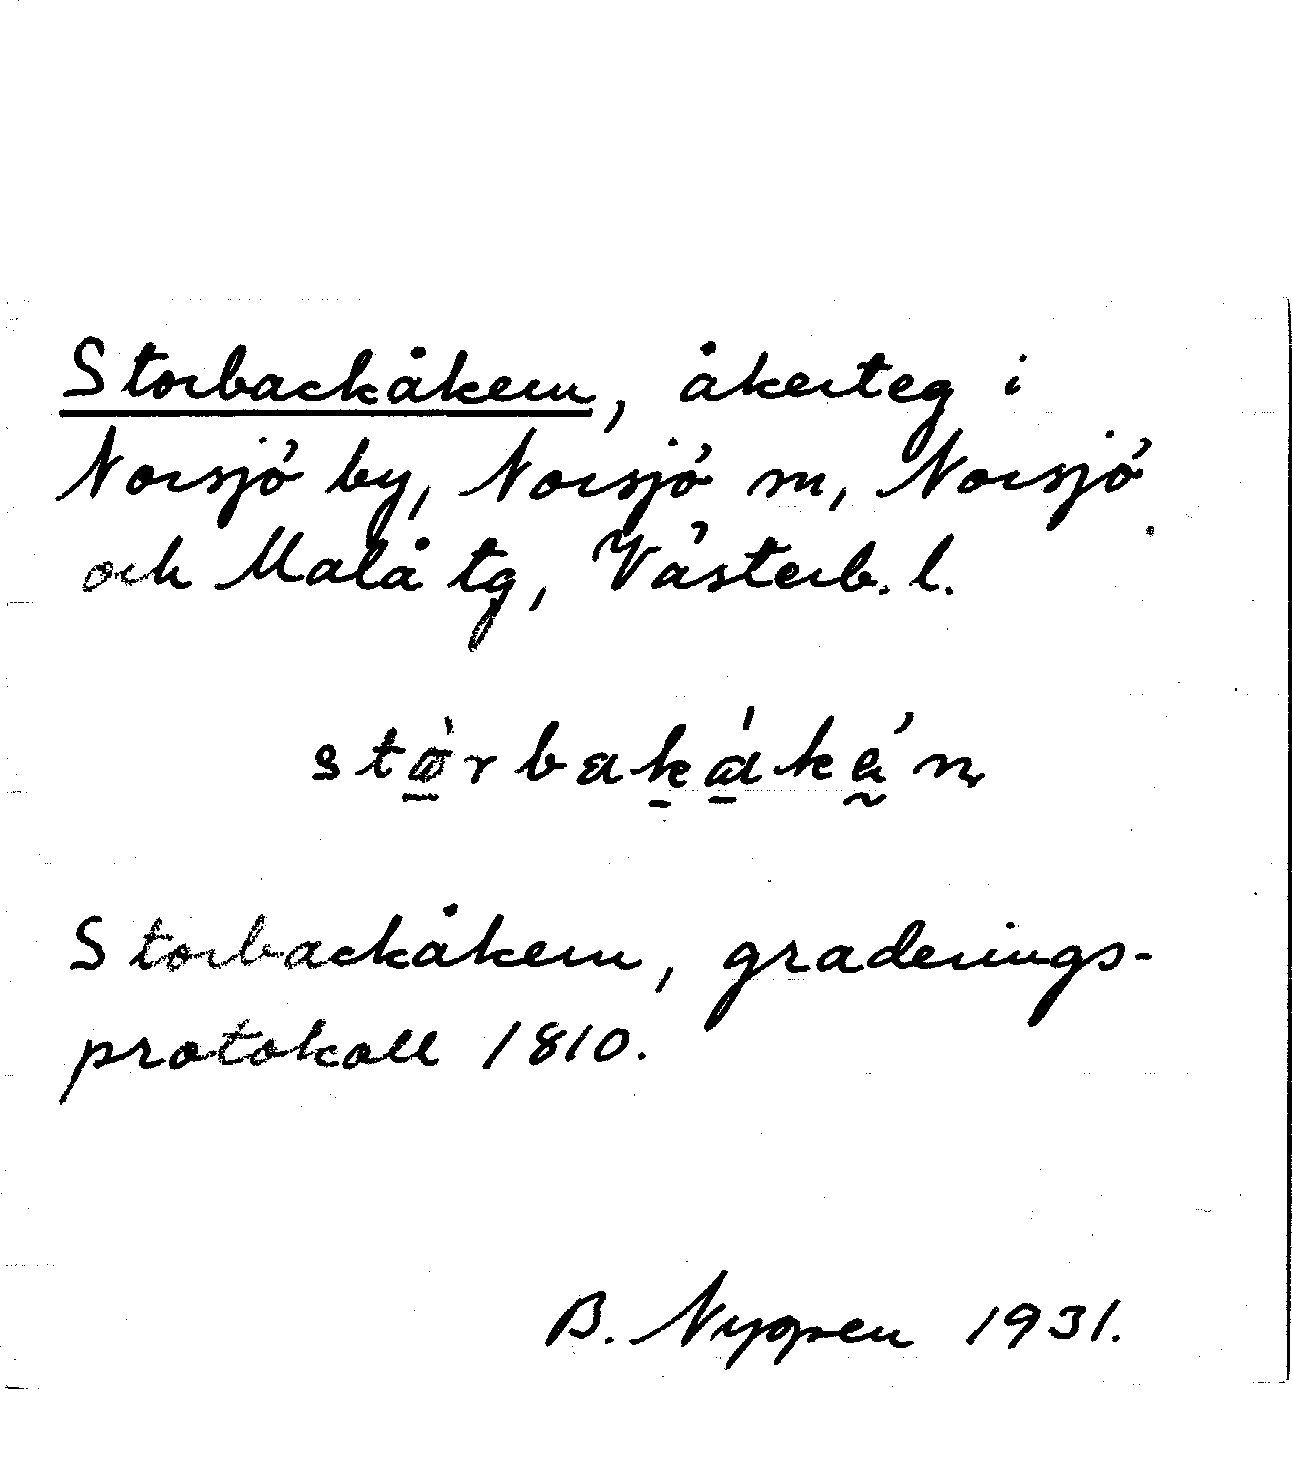 Storbackåkern, åkerteg i
Norsjö by, Norsjö m, Norsjö
och Malå tg, Västerb. l.
Storbackåkern, graderings-
protokoll 1810.
B. Nygren 1931.